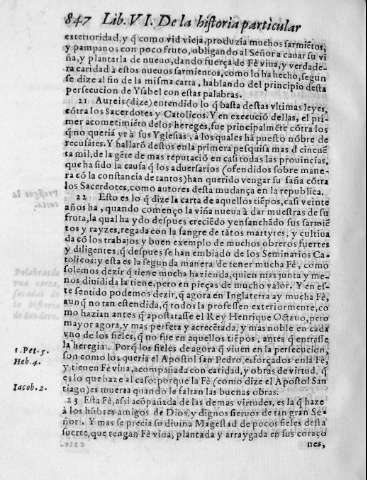 847 Lib. VI. De la historia particular
exterioridad, y q̃ como vid vieja, produzia muchos sarmiẽtos,
y pampanos, con poco fruto, obligando al Señor a cauar su vi
ña, y plantarla de nueuo, dando fuerça de Fè viua, y verdade-
ra caridad à estos nueuos sarmientos, como lo ha hecho, segun
se dize al fin de la misma carta, hablando del principio desta
persecucion de Ysabel con estas palabras.
21 Aureis (dize) entendido lo q̃ basta destas vltimas leyes,
cõtra los Sacerdotes y Catolicos. Y en execuciõ dellas, el pri-
mer acometimiẽto de los hereges, fue principalmẽte cõtra los
q̃ no querìã yr à sus Yglesias, à los quales hã puesto nõbre de
recusãtes. Y hallarõ destos en la primera pesquisa mas d̃ cincuẽ
ta mil, de la gẽte de mas reputaciõ en casi todas las prouincias,
que hã sido la causa q̃ los aduersarios (ofendidos sobre mane-
ra cõ la constancia de tantos) han querido vengar su saña cõtra
los Sacerdotes, como autores desta mudança en la republica.
22 Esto es lo q̃ dize la carta de aquellos tiẽpos, casi veinte
años ha, quando començo la viña nueua à dar muestras de su
fruta, la qual ha ydo despues creciẽdo y ensanchãdo sus sarmiẽ
tos y rayzes, regada con la sangre de tãtos martyres, y cultiua
da cõ los trabajos y buen exemplo de muchos obreros fuertes
y diligentes, q̃ despues se han embiado de los Seminarios Ca-
tolicos: y esta es la segunda manera de tener mucha Fè, como
solemos dezir q̃ tiene mucha hazienda, quien mas junta y me-
nos diuidida la tiene, pero en pieças de mucho valor. Y en es-
te sentido podemos dezir, q̃ agora en Inglaterra ay mucha Fè,
aunq̃ no tan estendida, q̃ todos la professen exteriormente, co
mo hazian antes q̃ apostatasse el Rey Henrique Octauo, pero
mayor agora, y mas perfeta y acrecẽtada, y mas noble en cada
vno de los fieles, q̃ no fue en aquellos tiẽpos, antes q̃ entrasse
la heregia. Porq̃ los fieles de agora q̃ viuen en la persecucion,
1. Pet. 5. son como los queria el Apostol san Pedro, esforçados en la Fè,
Heb. 4. y tienen Fè viua, acompañada con caridad, y obras de virtud, q̃
es lo que haze al caso: porque la Fè (como dize el Apostol San-
Iacob. 2. tiago) es muerta quando le faltan las buenas obras.
23 Esta Fè, assi acõpañada de las demas virtudes, es la q̃ haze
à los hõbres amigos de Dios, y dignos sieruos de tan gran Se-
ñor. Y mas se precia su diuina Magestad de pocos fieles desta
suerte, que tengan Fè viua, plantada y arraygada en sus coraço
nes,